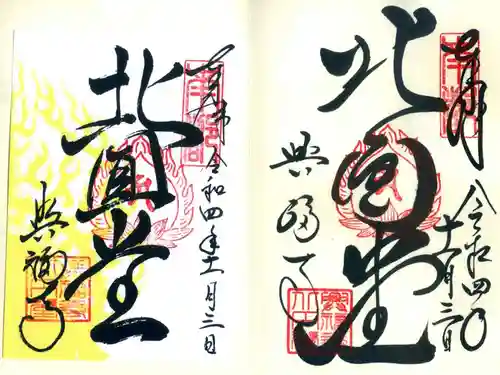 奉拝 令和四年十一月三日
北円堂
興福寺
奉拝
令和四年
十一月三日
北円堂
興福寺